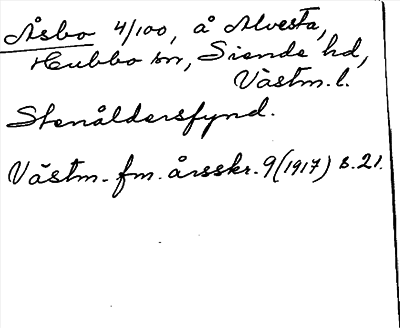 Åsbo 4/100, å Alvesta,
Hubbo sn, Siende hd,
Västm. l.
Stenåldersfynd.
Västm. fm. årsskr. 9 (1917) s. 21.